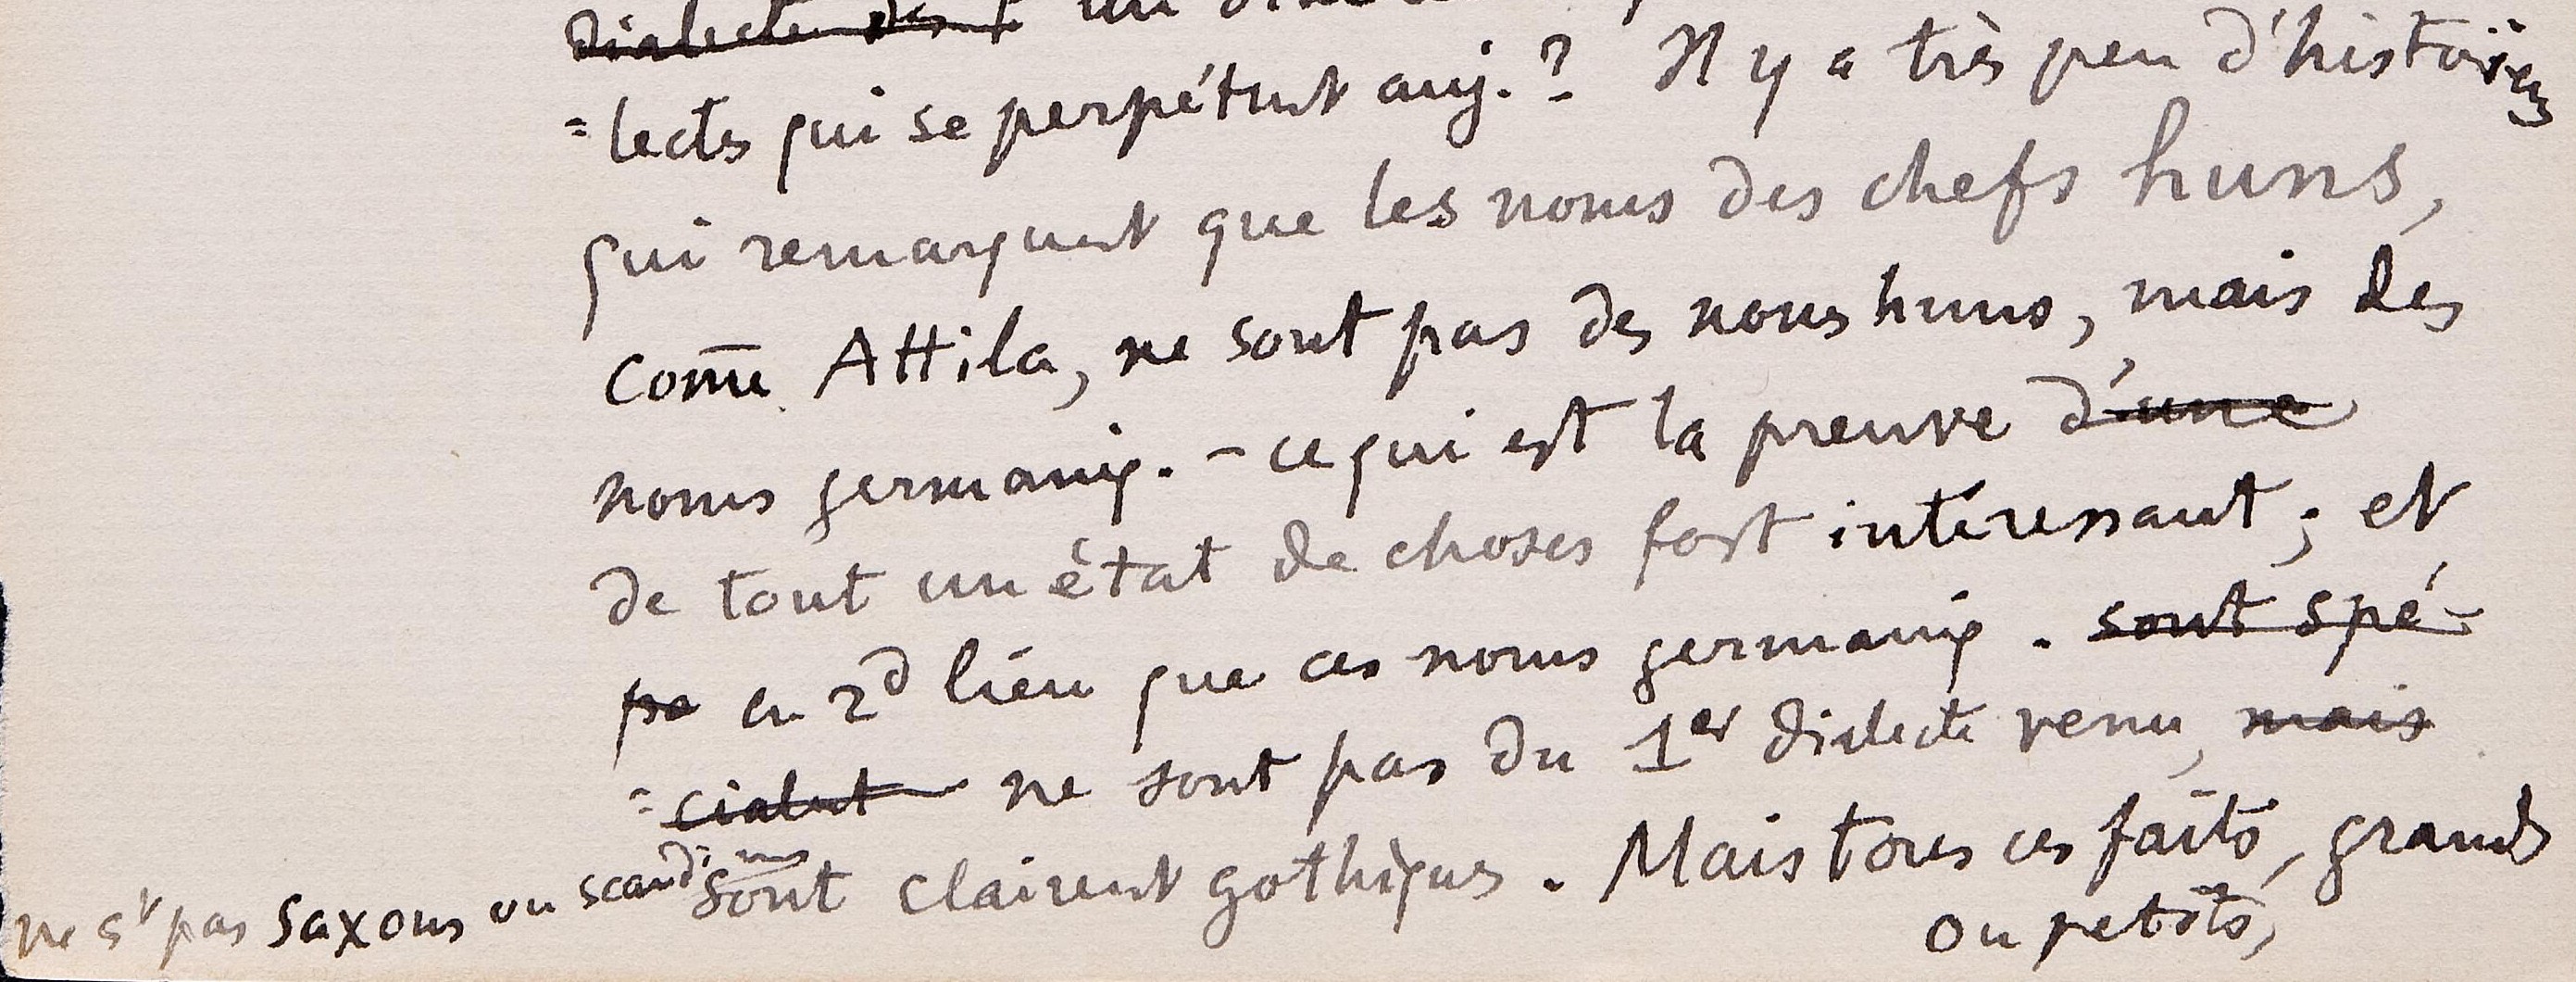 dialecte des
=lects qui se perpétunt auj.? Il y a très peu d'historiens
qui remarquent que les noms des chefs huns,
com̄e Attila, ne sont pas des noms huns, mais des
noms germaniq. – ce qui est la preuve d'une
de tout un état de choses fort intéressant ; et
pa en 2d lieu que ces noms germaniq. sont spé-
=cialnt ne sont pas du 1er dialecte venu, mais
ne st pas saxons ou scandines sont clairent gothiques. Mais tous ces faits, grands
ou petits,